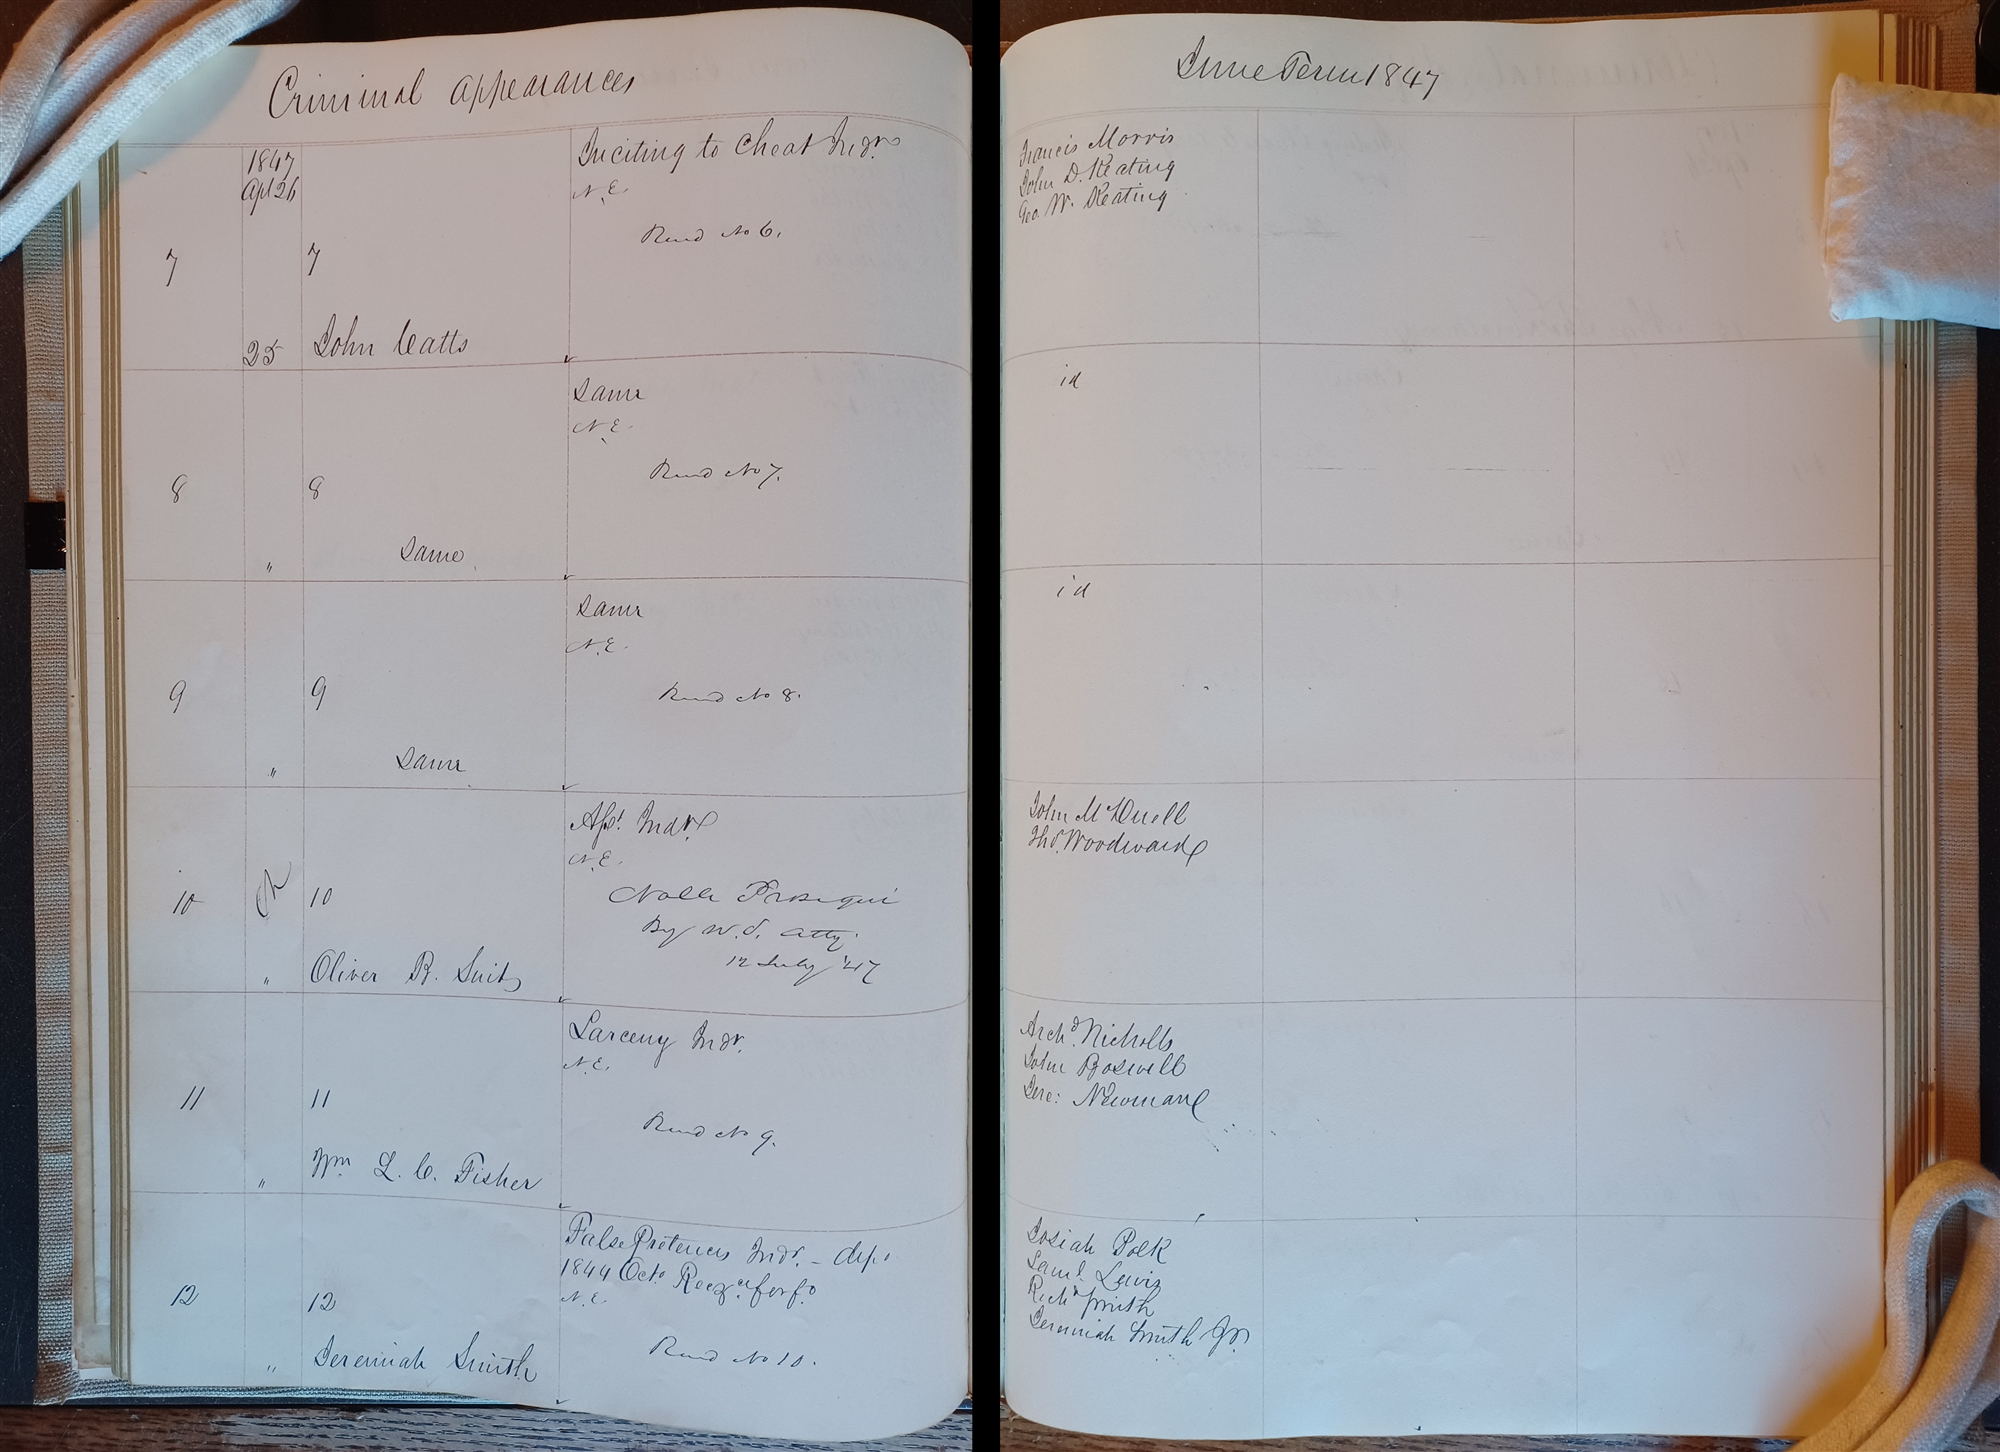 Criminal appearances
1847
Apl 26
7
7
25 John Catts
Inciting to Cheat Indr.
N.E.
Rend No 6.
8
8
" Same
Same
N.E.
Rend No 7.
9
9
" Same
Same
N.E.
Rend No 8.
10
10
" Oliver B. Suit
Asst. Indr.
N.E.
Nolle Prosequi
By U.S. Atty.
12 July '47
11
11
" Wm L. C. Fisher
Larceny Indr.
N.E.
Rend No 9.
12
12
" Jeremiah Smith
False Pretences Indr. -
1844 Octo. Recze. forfo.
N.E.
Rend No 10.
June Term 1847
Francis Morris
John D. Keating
Geo. W. Keating
id
id
John McDuell
Thos. Woodward
Archd. Nicholls
John Boswell
Jere: Newman
Josiah Polk
Saml. Lewis
Richd Smith
Jeremiah Smith Jr.